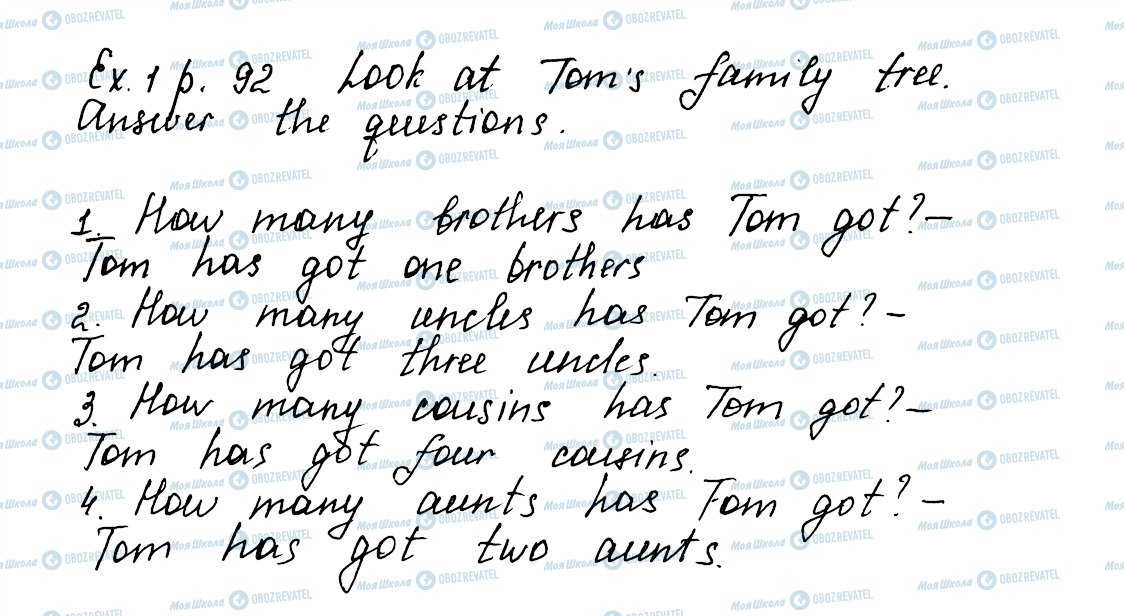 Ex. 1 p. 92 Look at Tom's family tree.
Answer the questions.
1. How many brothers has Tom got? –
Tom has got one brothers
2. How many uncles has Tom got? –
Tom has got three uncles.
3. How many cousins has Tom got? –
Tom has got four cousins.
4. How many aunts has Tom got? –
Tom has got two aunts.
МояШкола OBOZREVATEL